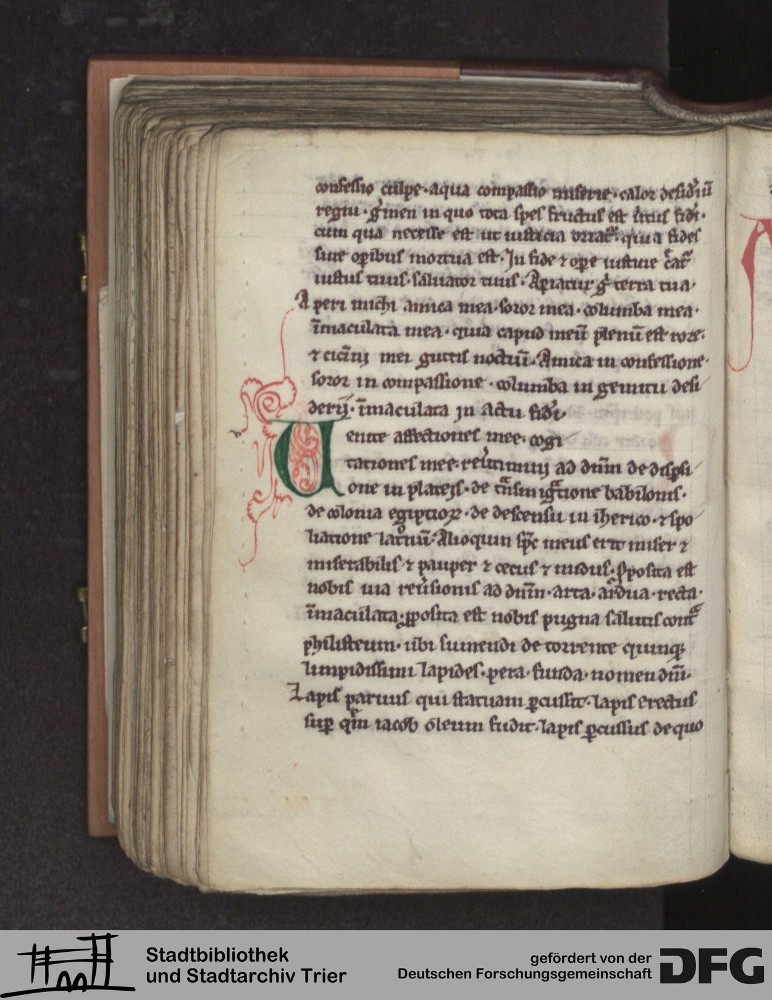 confessio culpe · aqua compassio miserie · calor desid'iū
regni · g̃men in quo tota spes fructus est uirtus fidi ·
cum qua necesse est ut iusticia · quia fides
sine op̃ibus mortua est · In fide ⁊ ope iusticie
iustus tuus · saluator tuus · Apiatur g̊ terra tua ·
Aperi michi amica mea · soror mea · columba mea ·
īmaculata mea · quia capud meū plenū est rore ·
⁊ cicīnij mei guttis noctiū · Amica in confessione ·
soror in compassione · columba in gemitu desi
derij · īmaculata in actu fidi ·
Uenite affectiones mee · cogi
tationes mee · reu̓timini ad dn̄m de dispsi
one in plateis · de tᷓnsmigᷓtione babilonis ·
de colonia egiptioꝝ · de descensu in iherico · ⁊ spo
liatione latᷓnū · Alioquin sp̄c meus erit miser ⁊
miserabilis ⁊ pauper ⁊ cecus ⁊ nudus · Pposita est
nobis uia reu̓sionis ad dn̄m · arta · ardua · recta ·
īmaculata · ꝓposita est nobis pugna salutis contᷓ
philisteum · ubi sumendi de torrente quinqꝫ
limpidissimi lapides · pera · funda · nomen dn̄i ·
Lapis paruus qui statuam ꝑcussit · lapis erectus
suꝑ quē iacob oleum fudit · lapis ꝑcussus de quo
Stadtbibliothek
und Stadtarchiv Trier
gefördert von der
Deutschen Forschungsgemeinschaft
DFG